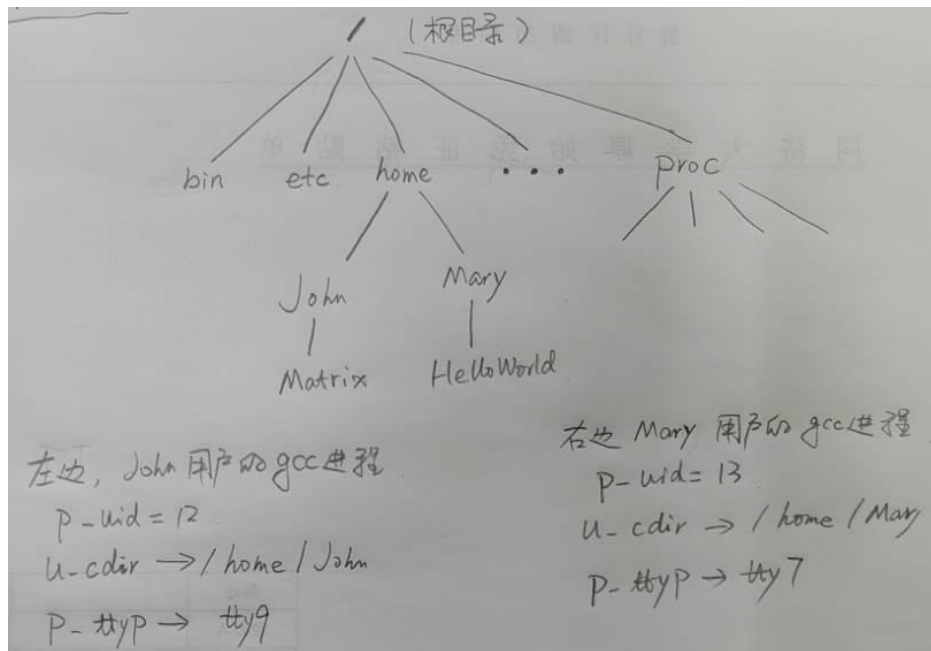 / (根目录)
bin etc home ... proc
John Mary
Matrix HelloWorld
左边, John 用户的 gcc进程
p-uid = 12
u-cdir → / home / John
p-ttyp → tty9
右边 Mary 用户的 gcc进程
p-uid = 13
u-cdir → / home / Mary
p-ttyp → tty7